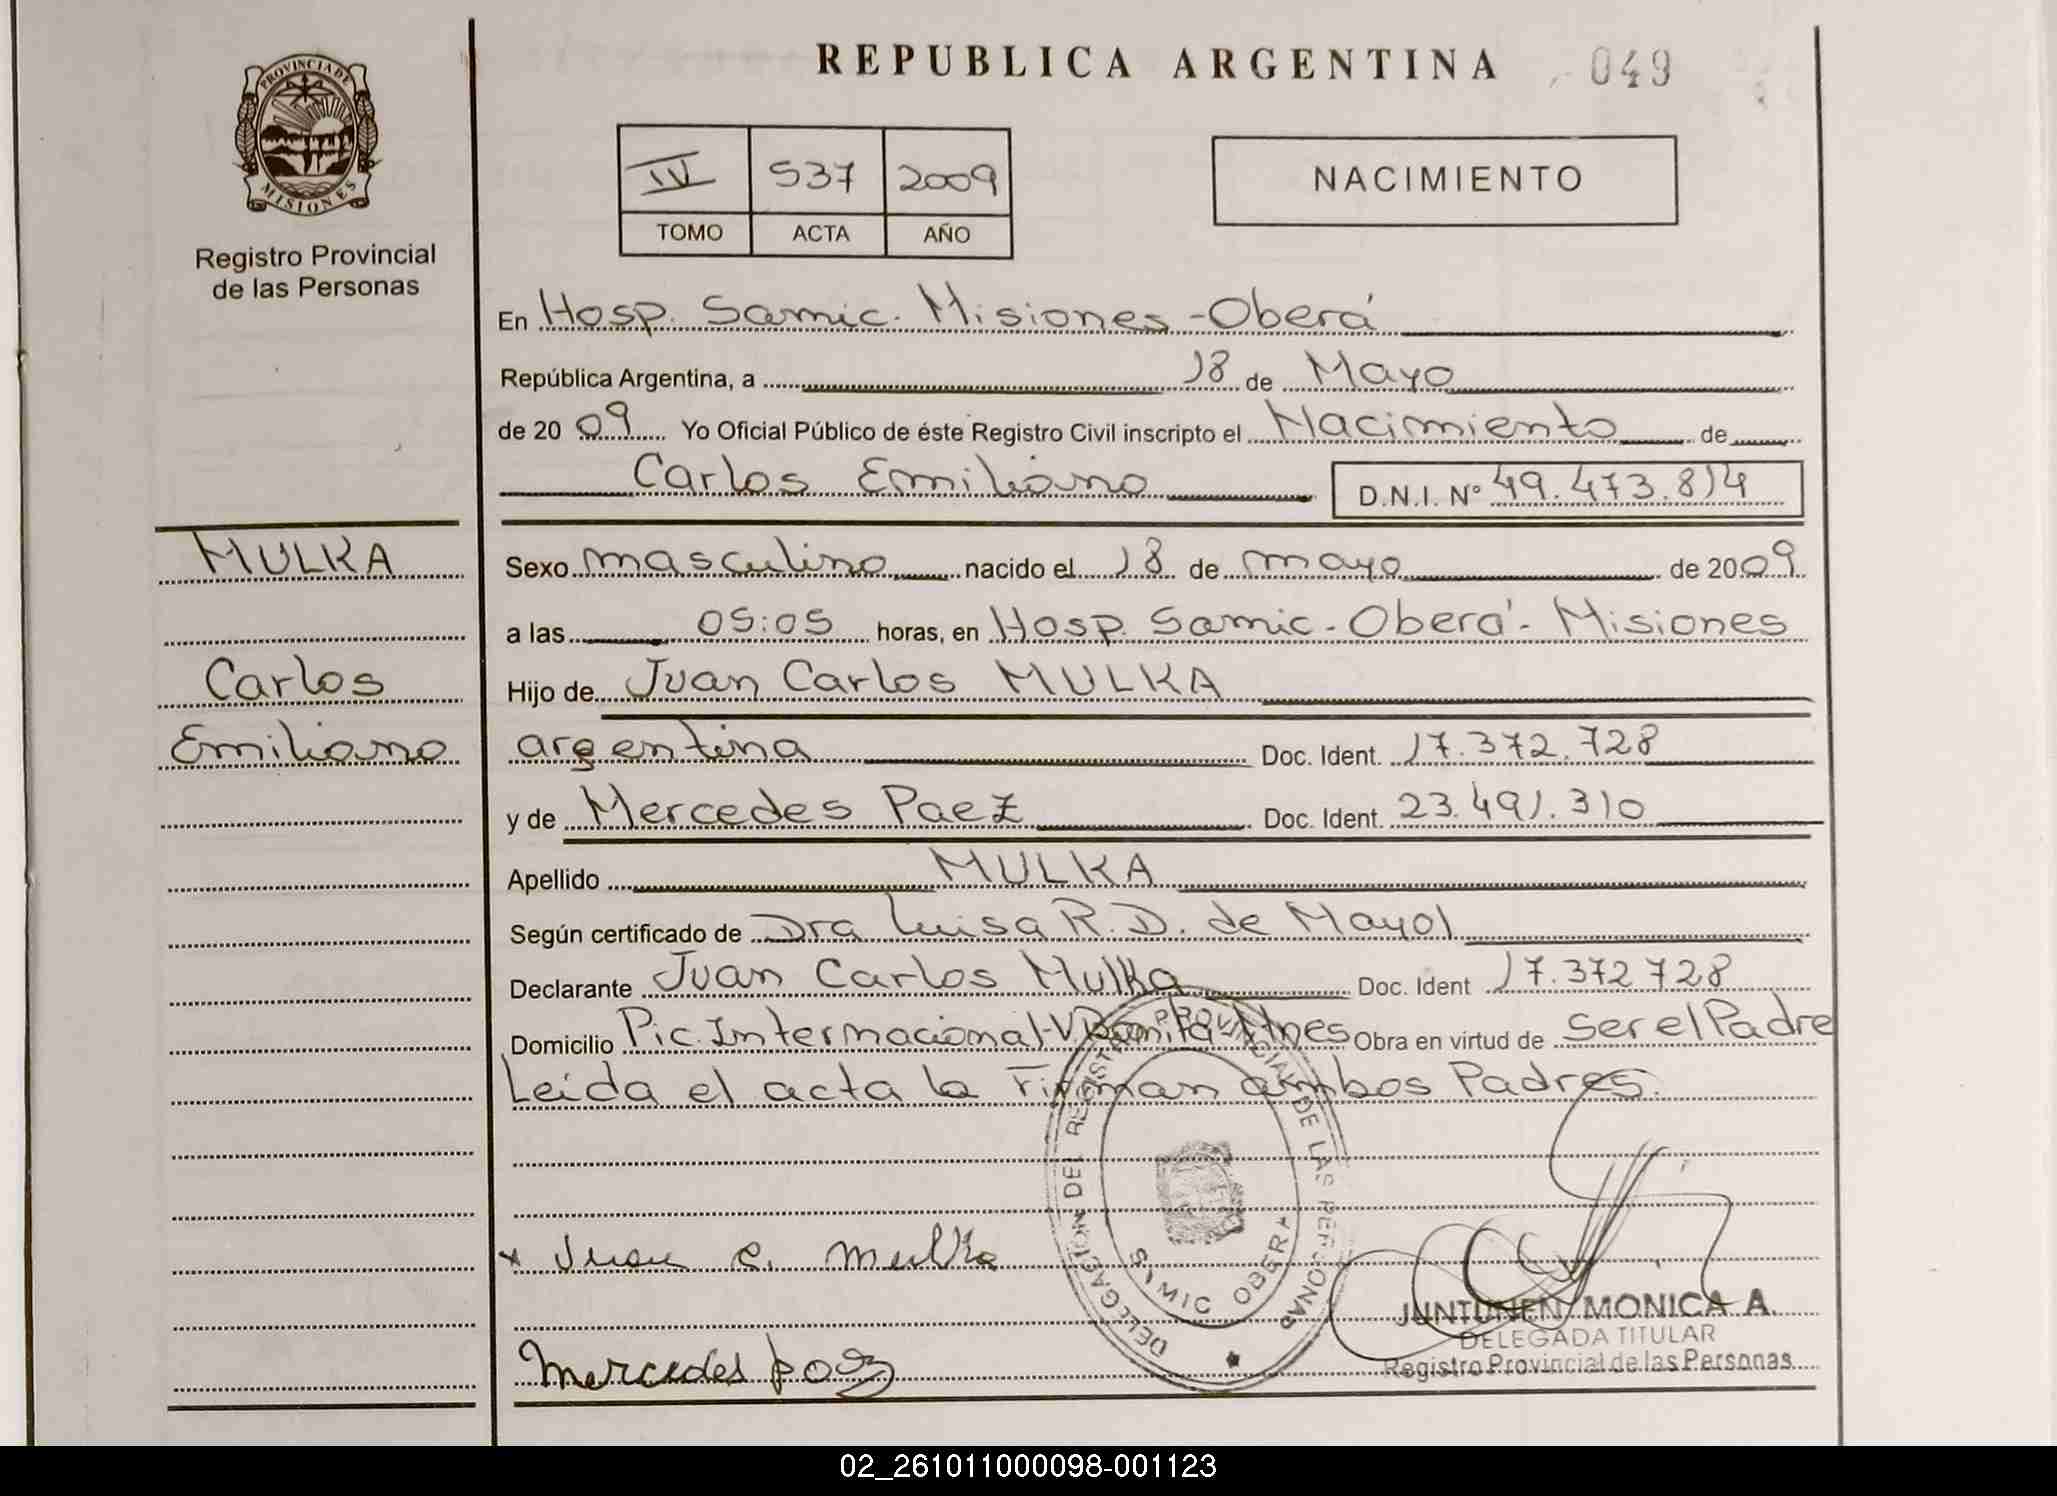 REPUBLICA ARGENTINA 049
PROVINCIA DE
MISIONES
Registro Provincial
de las Personas
IV 537 2009
TOMO ACTA AÑO
NACIMIENTO
En Hosp. Samic. Misiones - Oberá
República Argentina, a 18 de Mayo
de 20 09 Yo Oficial Público de éste Registro Civil inscripto el Nacimiento de
Carlos Emiliano D.N.I. Nº 49.473.814
MULKA
Carlos
Emiliano
Sexo masculino nacido el 18 de mayo de 2009
a las 05:05 horas, en Hosp. Samic - Oberá - Misiones
Hijo de Juan Carlos MULKA
argentina Doc. Ident. 17.372.728
y de Mercedes Paez Doc. Ident. 23.491.310
Apellido MULKA
Según certificado de Dra Luisa R. D. de Mayol
Declarante Juan Carlos Mulka Doc. Ident 17.372728
Domicilio Pic. Internacional - V. Bonita - Mnes Obra en virtud de Ser el Padre
Leida el acta la Firman ambos Padres.
DELEGACION DEL REGISTRO PROVINCIAL DE LAS PERSONAS
SAMIC OBERA
x Juan C. Mulka
Mercedes Paez
JUNTUNEN MONICA A.
DELEGADA TITULAR
Registro Provincial de las Personas
02_261011000098-001123